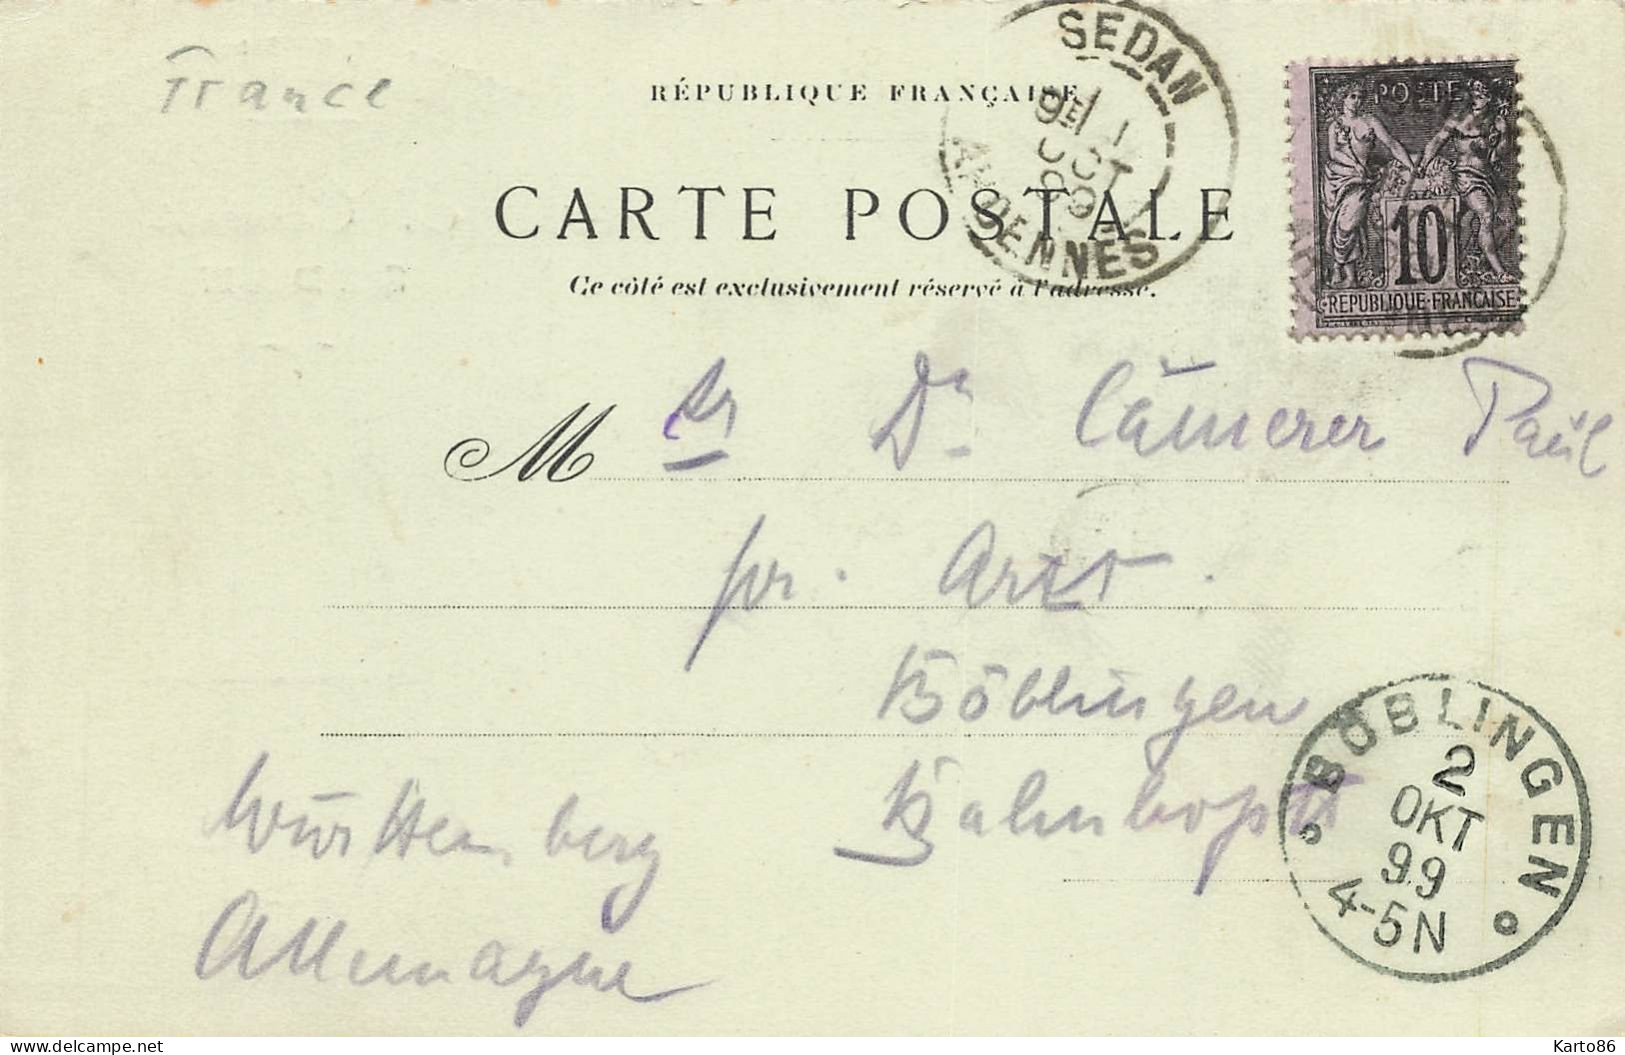 France
RÉPUBLIQUE FRANÇAISE
CARTE POSTALE
Ce côté est exclusivement réservé à l'adresse.
SEDAN
9E 1
OCT
99
ARDENNES
POSTE
10
REPUBLIQUE FRANÇAISE
M Dr Cämerer Paul
pr. Arzt.
Böblingen
Bahnhofstr
Württemberg
Allemagne
BÖBLINGEN
2
OKT
99
4-5N
delcampe.net
Karto86